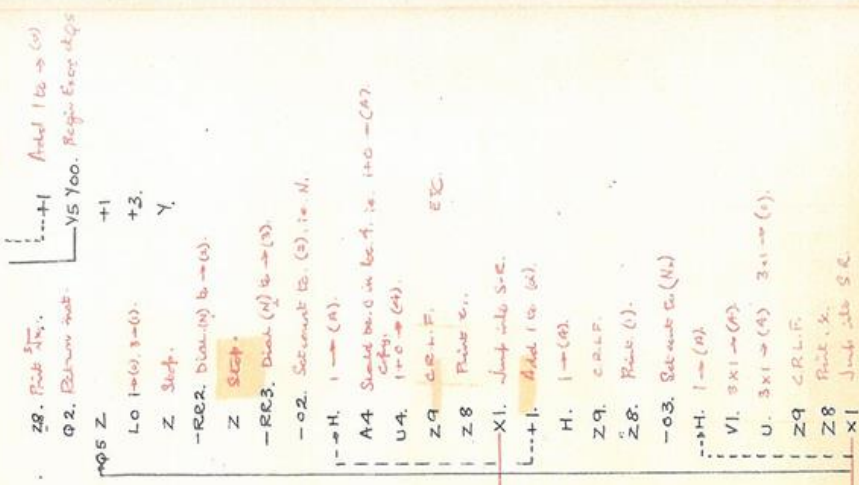 Z8. Print No.. +1 Add 1 to → (0)
Q2. Return inst. Y5 Y00. Begin Exec
Q5 Z +1
L0 1→(0), 3→(1). +3.
Z Stop. Y.
-RR2. Dial (N) to → (2).
Z Stop.
-RR3. Dial (N) to → (3).
-02. Set count to. (2). i.e. N.
H. 1 → (A).
A4 Should be 0 in loc. 4. i.e. 1+0 → (A).
U4. 1+0 → (4).
Z9 C.R.L.F. ETC.
Z8 Print
X1. Jump into S.R.
+1. Add 1 to
H. 1→(A).
Z9. C.R.L.F.
Z8. Print (1).
-03. Set count to (N2)
H. 1→(A).
V1. 3x1→(A)
U. 3x1→(4) 3x1→(0).
Z9 C.R.L.F.
Z8 Print
X1 Jump into S.R.